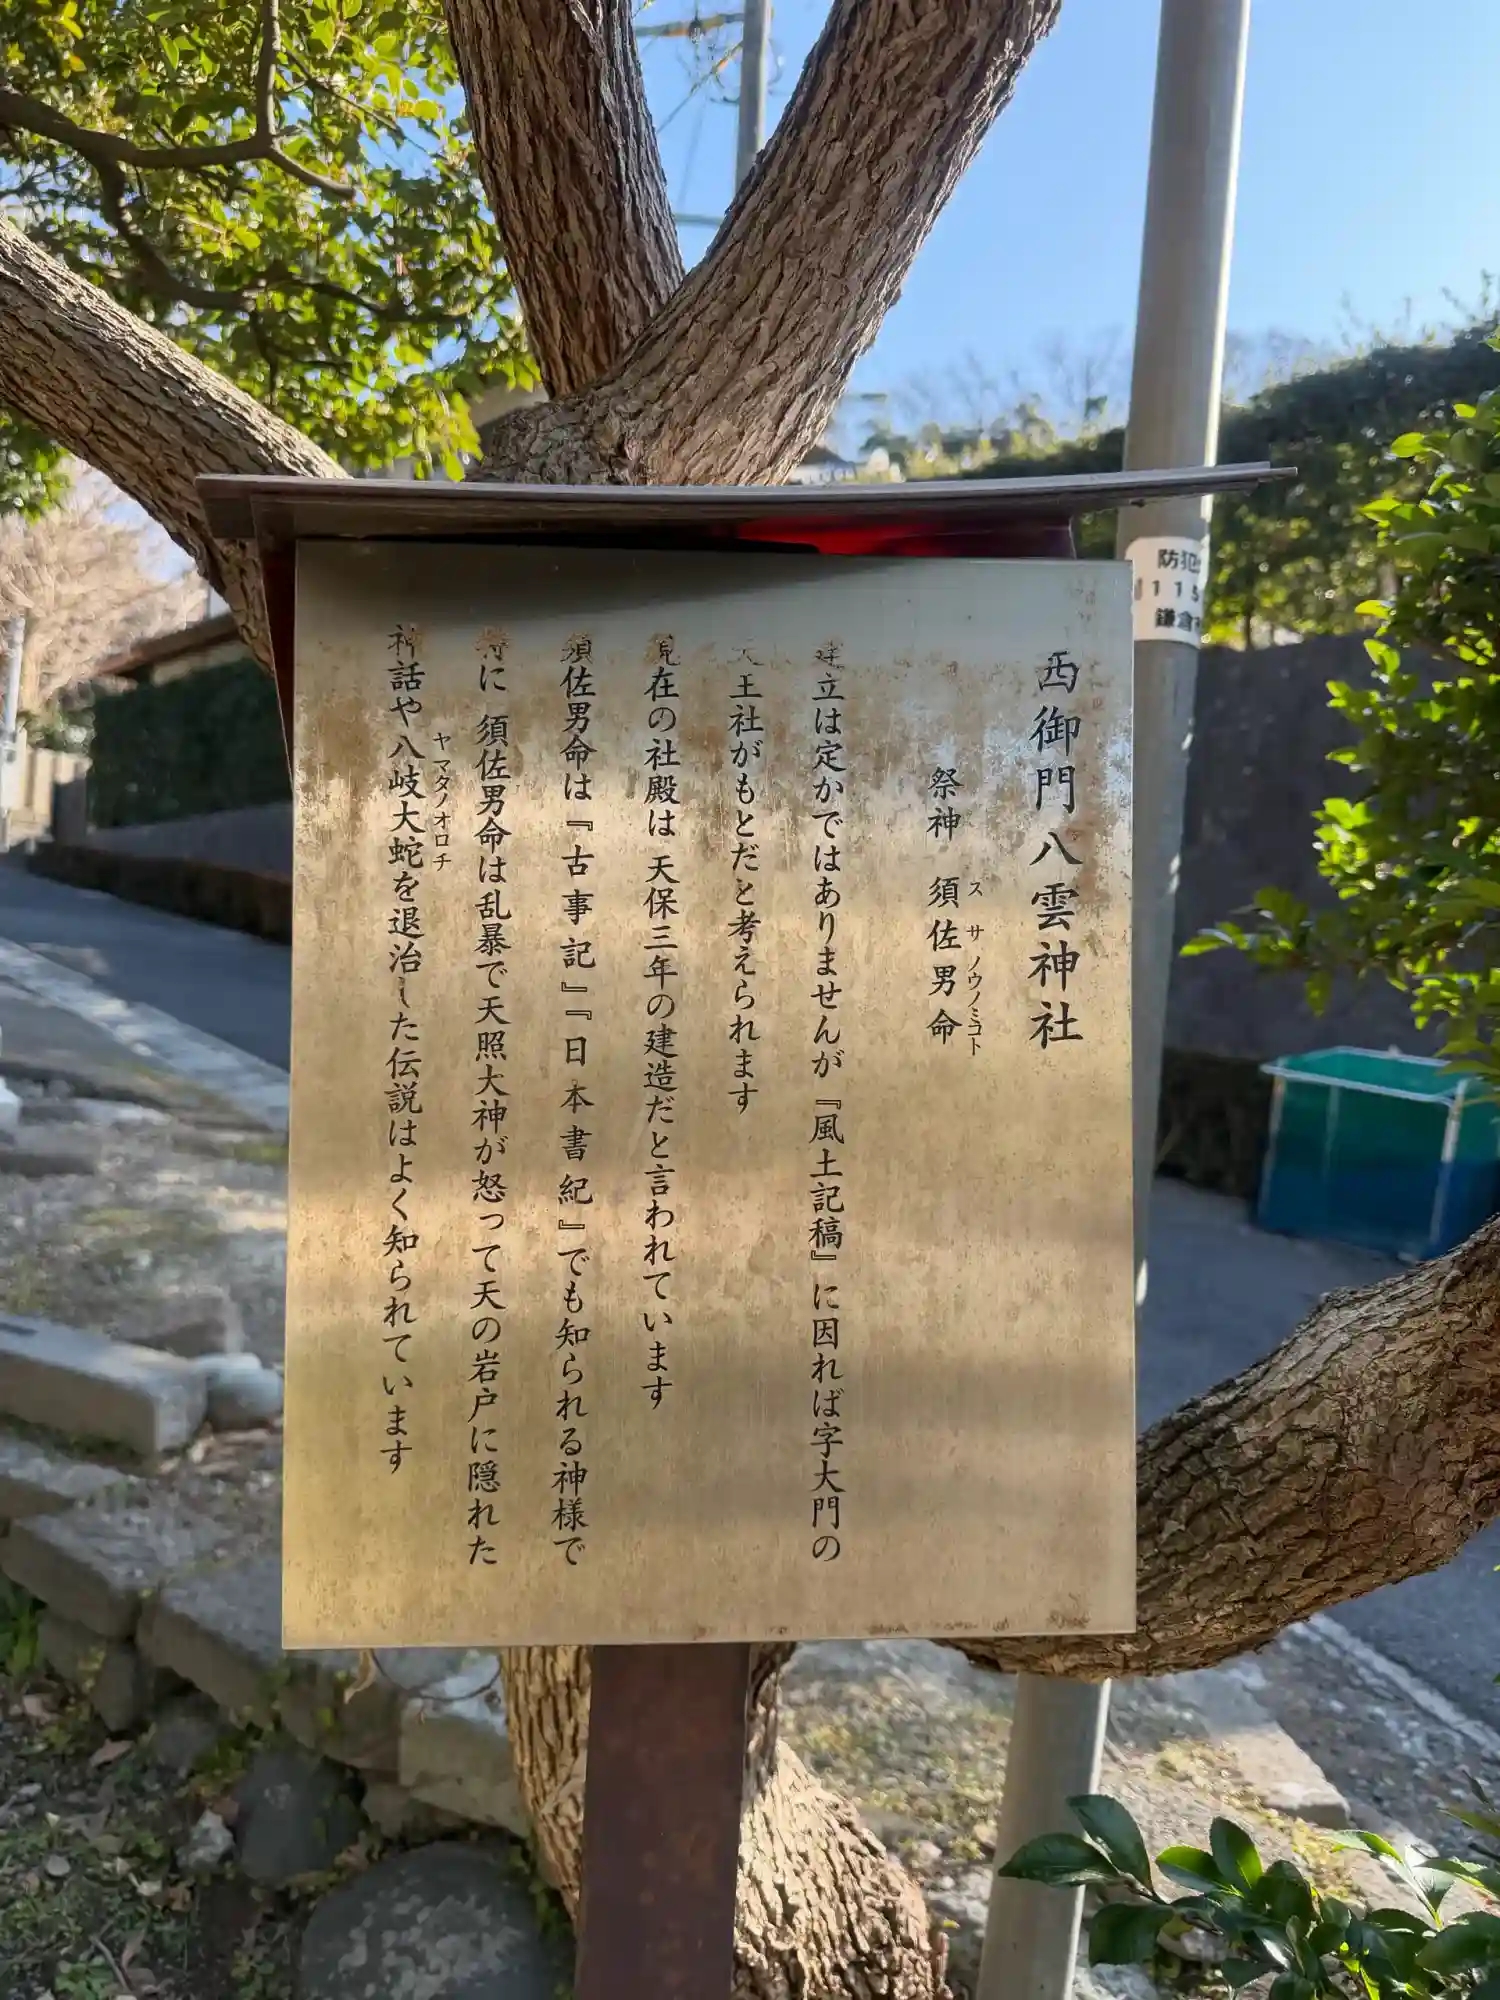 西御門八雲神社
祭神 須佐男命
ス サ ノウノミコト
建立は定かではありませんが『風土記稿』に因れば字大門の
天王社がもとだと考えられます
現在の社殿は 天保三年の建造だと言われています
須佐男命は『古事記』『日本書紀』でも知られる神様で
特に 須佐男命は乱暴で天照大神が怒って天の岩戸に隠れた
ヤマタノオロチ
神話や八岐大蛇を退治した伝説はよく知られています
防犯
115
鎌倉